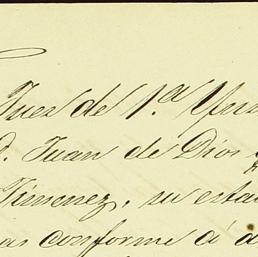 Juez de 1.ª Yns
D. Juan de Dios
Jimenez, su esta
as conforme á d